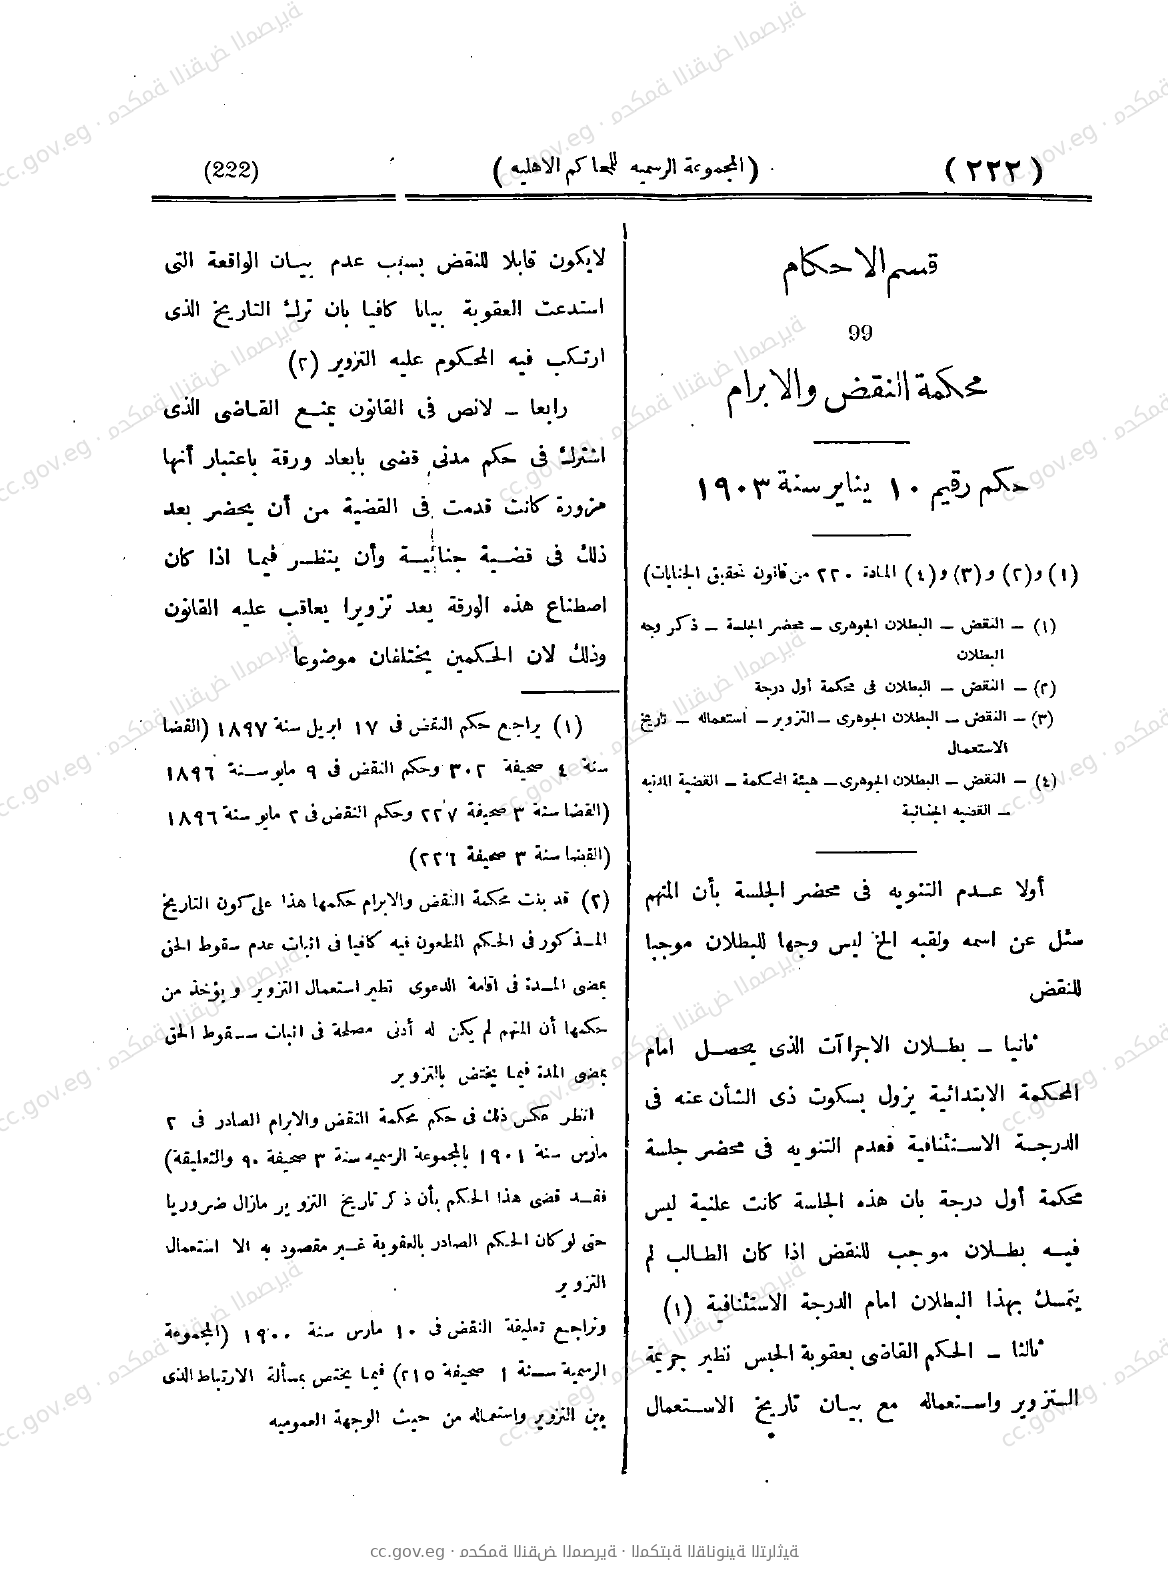 (٢٢٢)
(المجموعة الرسميه للمحاكم الاهليه)
(222)
قسم الاحكام
99
محكمة النقض والابرام
حكم رقيم ١٠ يناير سنة ١٩٠٣
(١) و(٢) و(٣) و(٤) المادة ٢٢٠ من قانون تحقيق الجنايات)
(١) – النقض – البطلان الجوهرى – محضر الجلسة – ذكر وجه
البطلان
(٢) – النقض – البطلان فى محكمة أول درجة
(٣) – النقض – البطلان الجوهرى – التزوير – استعماله – تاريخ
الاستعمال
(٤) – النقض – البطلان الجوهرى – هيئة المحكمة – القضية المدنيه
– القضيه الجنائية
أولا عدم التنويه فى محضر الجلسة بأن المتهم
سئل عن اسمه ولقبه الخ ليس وجها للبطلان موجبا
للنقض
ثانيا – بطلان الاجراآت الذى يحصل امام
المحكمة الابتدائية يزول بسكوت ذى الشأن عنه فى
الدرجة الاستئنافية فعدم التنويه فى محضر جلسة
محكمة أول درجة بان هذه الجلسة كانت علنية ليس
فيه بطلان موجب للنقض اذا كان الطالب لم
يتمسك بهذا البطلان امام الدرجة الاستئنافية (١)
ثالثا – الحكم القاضى بعقوبة الحبس نظير جريمة
التزوير واستعماله مع بيان تاريخ الاستعمال
لايكون قابلا للنقض بسبب عدم بيان الواقعة التى
استدعت العقوبة بيانا كافيا بان ترك التاريخ الذى
ارتكب فيه المحكوم عليه التزوير (٢)
رابعا – لانص فى القانون يمنع القاضى الذى
اشترك فى حكم مدنى قضى بابعاد ورقة باعتبار أنها
مزورة كانت قدمت فى القضية من أن يحضر بعد
ذلك فى قضية جنائية وأن ينظر فيما اذا كان
اصطناع هذه الورقة يعد تزويرا يعاقب عليه القانون
وذلك لان الحكمين يختلفان موضوعا
(١) يراجع حكم النقض فى ١٧ ابريل سنة ١٨٩٧ (القضا
سنة ٤ صحيفة ٣٠٢ وحكم النقض فى ٩ مايو سنة ١٨٩٦
(القضا سنة ٣ صحيفة ٢٢٧ وحكم النقض فى ٢ مايو سنة ١٨٩٦
(القضا سنة ٣ صحيفة ٢٢٦)
(٢) قد بنت محكمة النقض والابرام حكمها هذا على كون التاريخ
المذكور فى الحكم المطعون فيه كافيا فى اثبات عدم سقوط الحق
بمضى المدة فى اقامة الدعوى نظير استعمال التزوير ويؤخذ من
حكمها أن المتهم لم يكن له أدنى مصلحة فى اثبات سقوط الحق
بمضى المدة فيما يختص بالتزوير
انظر عكس ذلك فى حكم محكمة النقض والابرام الصادر فى ٢
مارس سنة ١٩٠١ بالمجموعة الرسميه سنة ٣ صحيفة ٩٠ والتعليقة)
فقد قضى هذا الحكم بأن ذكر تاريخ التزوير مازال ضروريا
حتى لو كان الحكم الصادر بالعقوبة غير مقصود به الا استعمال
التزوير
وتراجع تعليقة النقض فى ١٠ مارس سنة ١٩٠٠ (المجموعة
الرسمية سنة ١ صحيفة ٢١٥) فيما يختص بمسألة الارتباط الذى
بين التزوير واستعماله من حيث الوجهة العموميه
cc.gov.eg · محكمة النقض المصرية · المكتبة القانونية التراثية